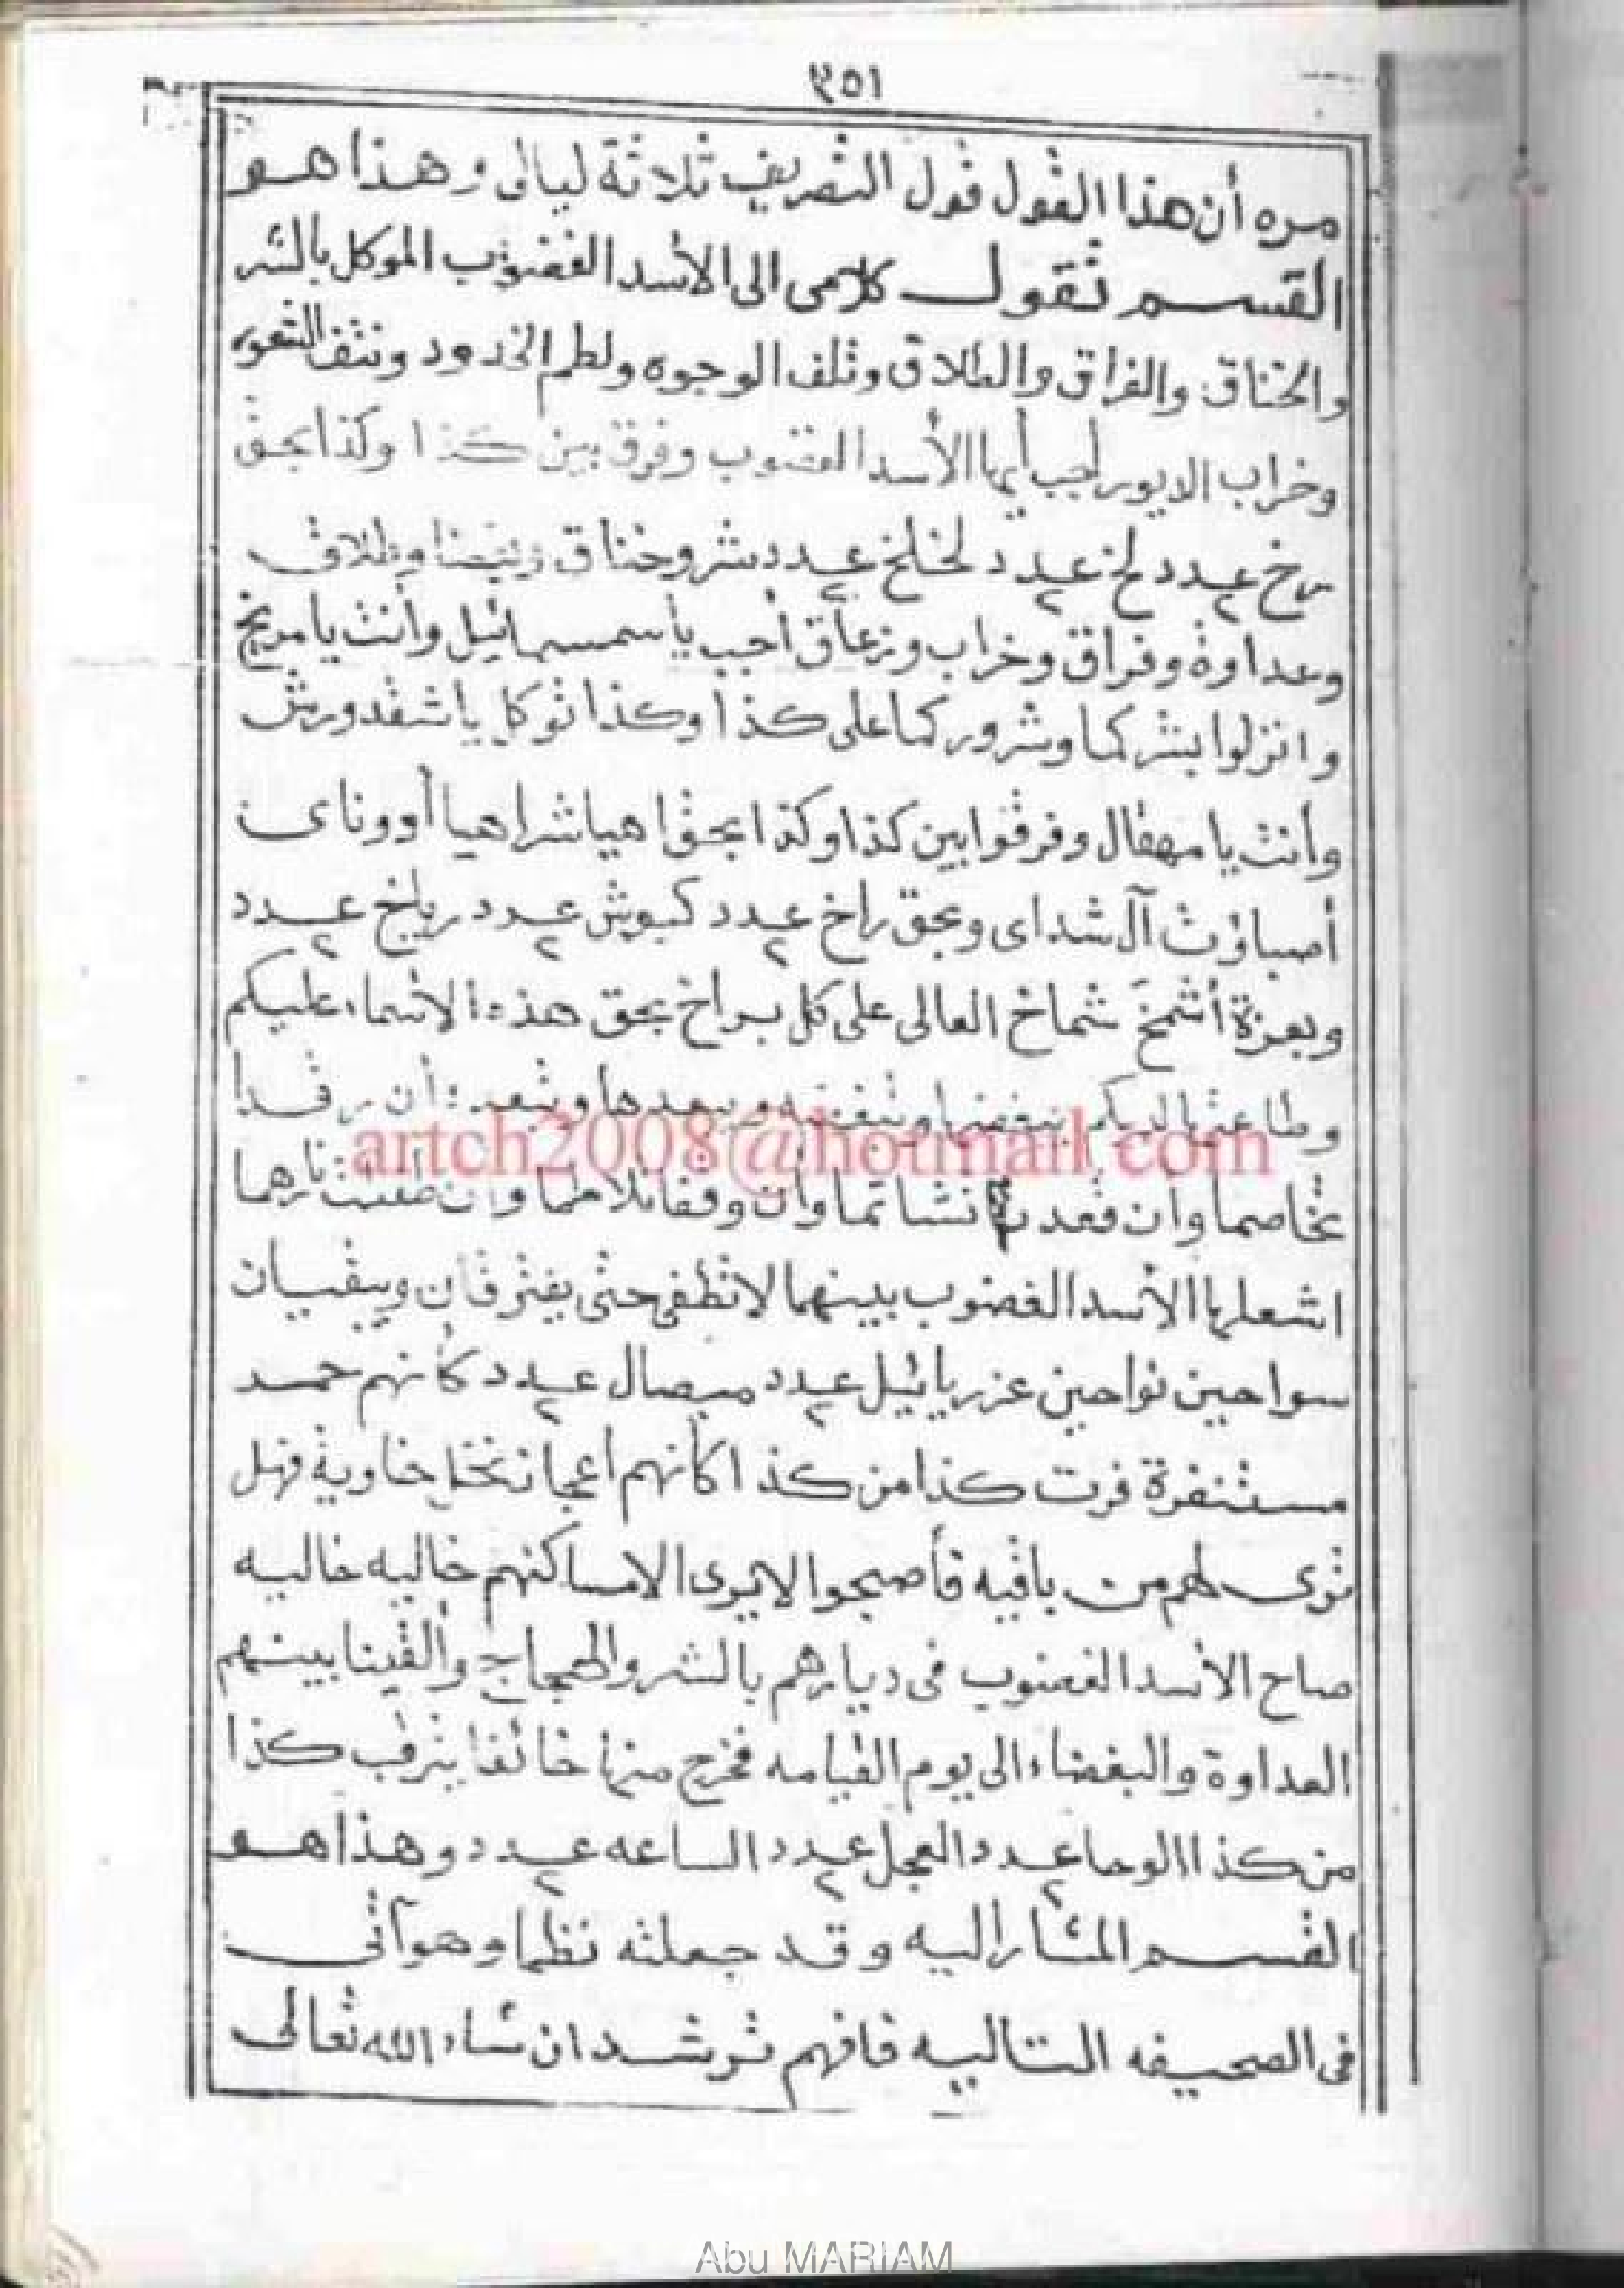 ٣٥١
مره أن هذا القول قول التصريف ثلاثة ليالى وهذا هو
القسم تقول كلامى الى الأسد الغضوب الموكل بالشر
والخناق والفراق والطلاق وتلف الوجوه ولطم الخدود ونتف الشعور
وخراب الديور أجب أيها الأسد الغضوب وفرق بين كذا وكذا بحق
برخ عدد ٢ لخ عدد ٢ لخلخ عدد ٢ بشر وخناق وطلاق
وعداوة وفراق وخراب وزعاق أجب يا سمسمائيل وأنت يا مريخ
وانزلوا بشركما وشروركما على كذا وكذا توكل يا شقدورش
وأنت يا مهقال وفرقوا بين كذا وكذا بحق اهيا شراهيا أدوناى
أصباؤث آل شداى وبحق راخ عدد ٢ كيوش عدد ٢ رياخ عدد ٢
وبعزة أشمخ شماخ العالى على كل براخ بحق هذه الاسماء عليكم
وطاعتها لديكم ويبعدها أن رقدا
تخاصما وان قعدا تشاتما وان وقفا تلاطما وان طفئت نارهما
اشعلها الأسد الغضوب بينهما لا تطفى حتى يفترقان ويبقيان
سواحين نواحين عزريائيل عدد ٢ ميصال عدد ٢ كأنهم حمر
مستنفرة فرت كذا من كذا كأنهم أعجاز نخل خاوية فهل
ترى لهم من باقيه فأصبحوا لا يرى الا مساكنهم خاليه خاليه
صاح الأسد الغضوب فى ديارهم بالشر والحجاج وألقينا بينهم
العداوة والبغضاء الى يوم القيامه فخرج منها خائفا يترقب كذا
من كذا الوحا عدد ٢ العجل عدد ٢ الساعه عدد ٢ وهذا هو
القسم المشار اليه وقد جعلته نظما وهو آتى
فى الصحيفه التاليه فافهم ترشد ان شاء الله تعالى
artch2008@hotmail.com
Abu MARIAM